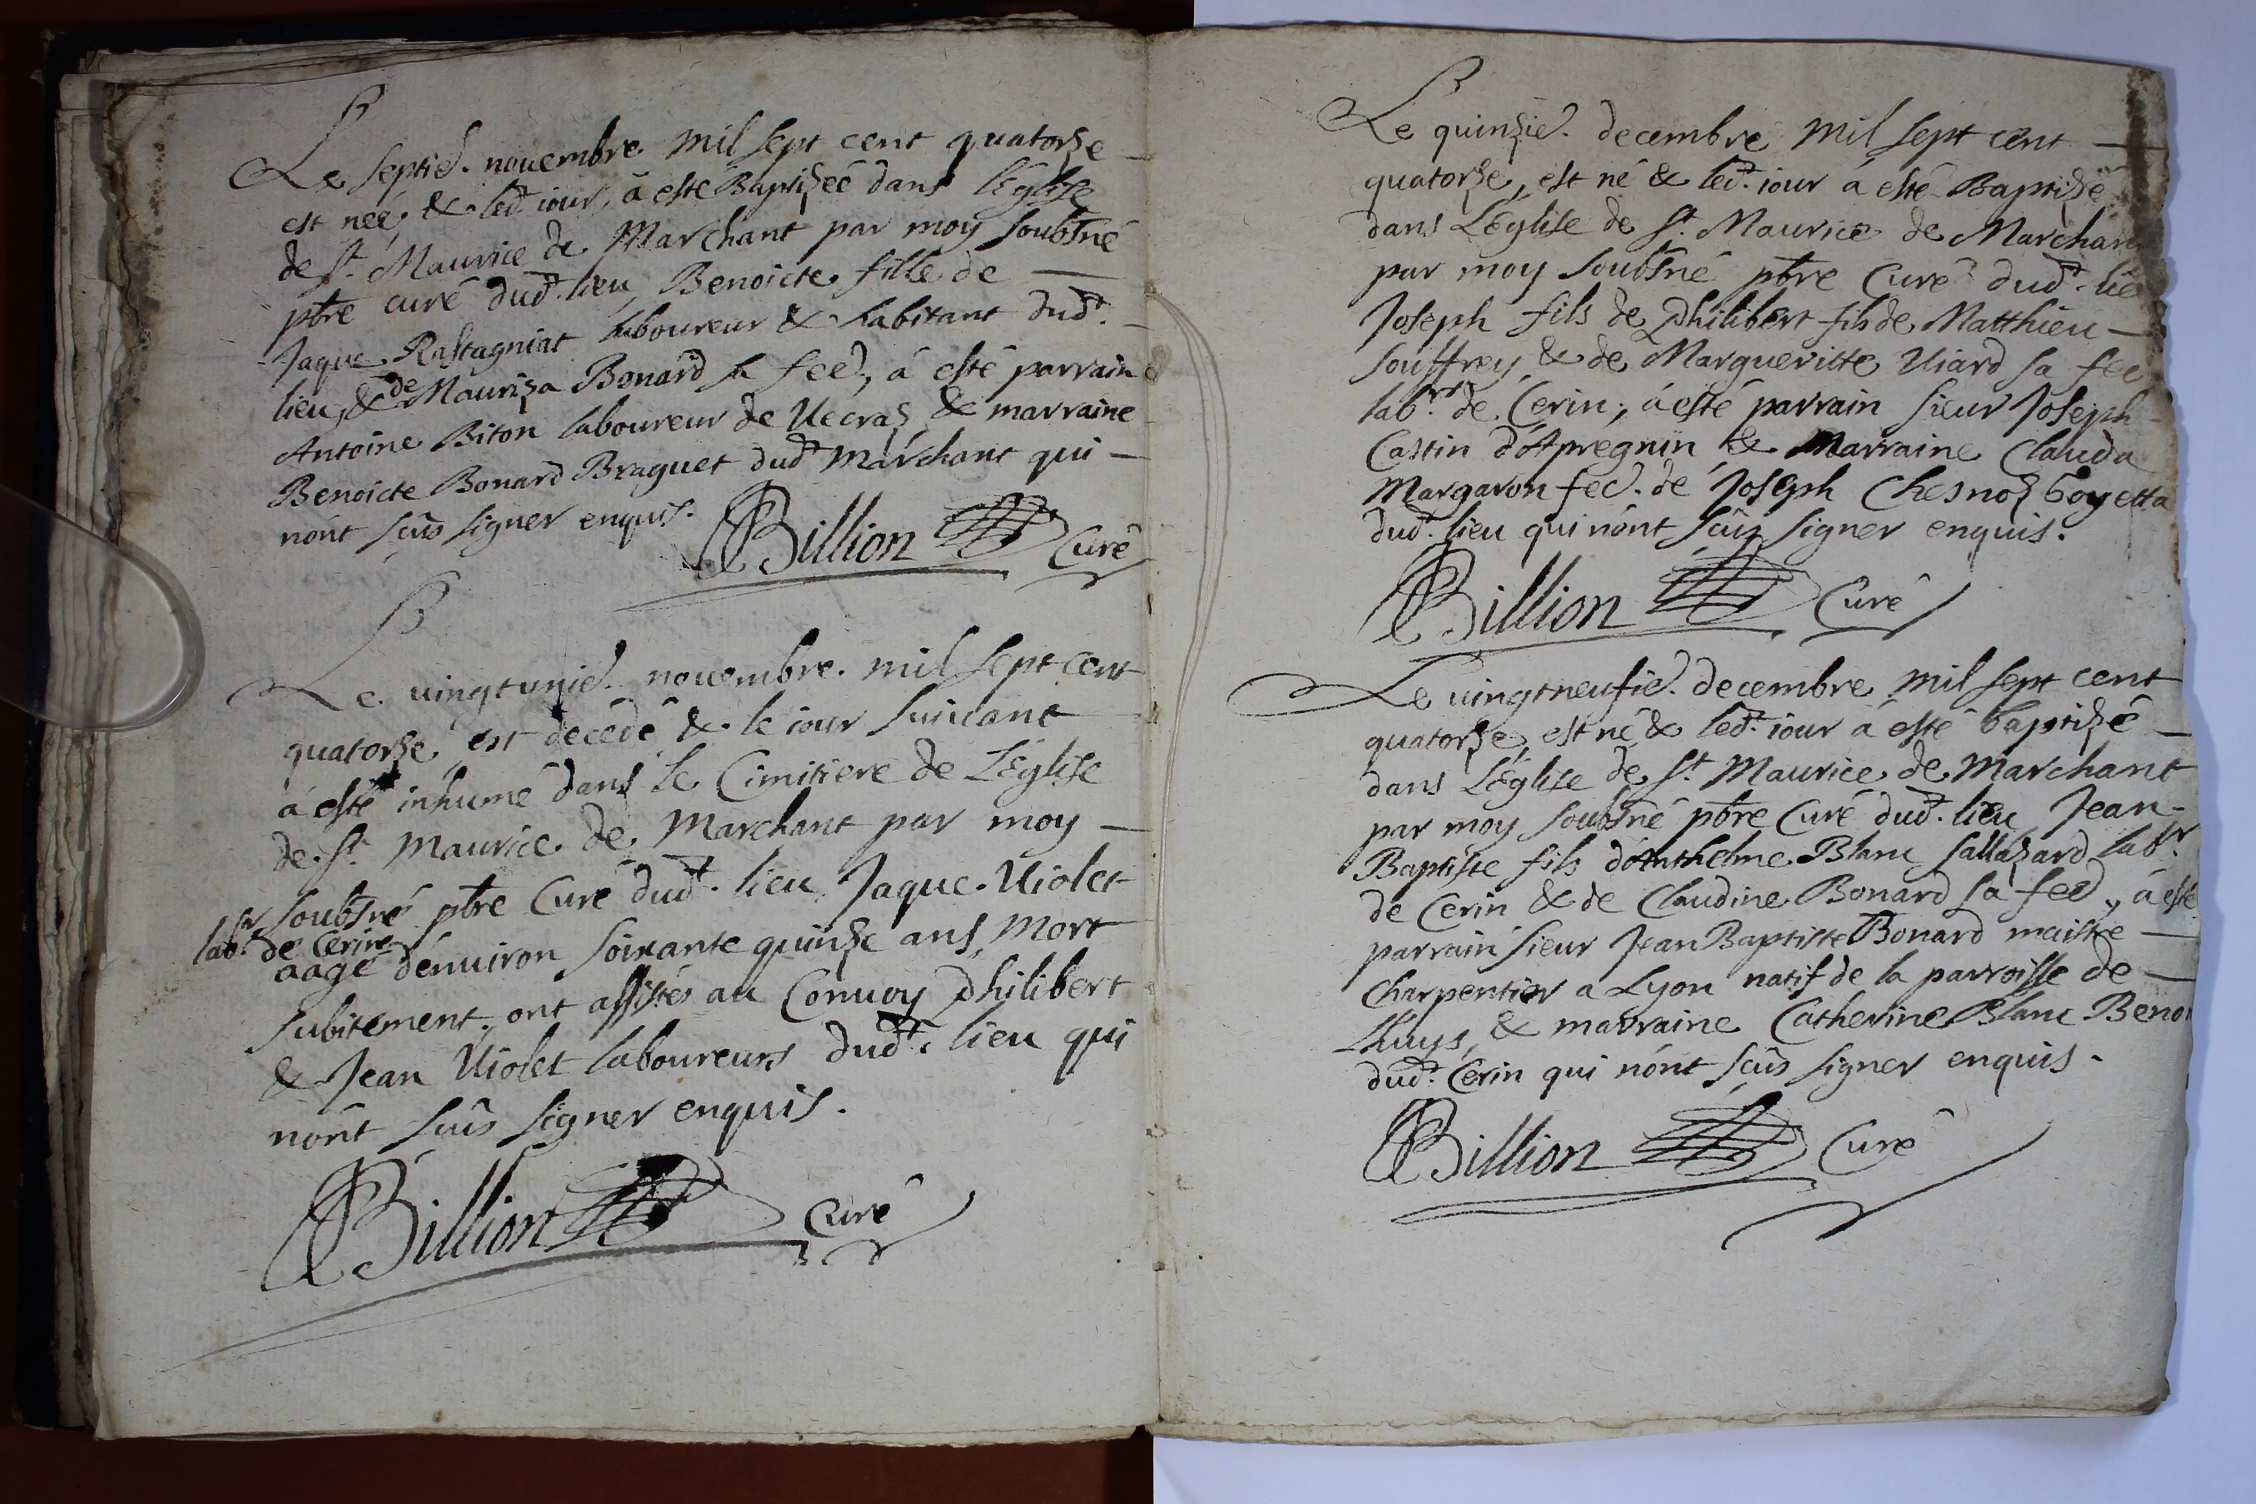 Le septie. novembre mil sept cent quatorze
est neé, & led. iour, á esté Baptizeé dans l'Église
de St. Maurice de Marchant par moy soubsné
pbre curé dud. lieu, Benoicte fille de
Jaque Rastagniat laboureur & habitant dud.
lieu, & de Mauriza Bonard sa fee, á esté parrain
Antoine Biton laboureur de Vecraz & marraine
Benoicte Bonard Braguet dud. Marchant qui
nónt sçûs signer enquis.
Billion Curé
Le vingtunie. novembre. mil sept cent
quatorze, est decedé & le iour suivant
á esté inhumé dans le Cimitiere de L'Église
de St. Maurice de Marchant par moy
soubsné pbre Curé dud. lieu, Jaque Violet
labr. de Cerin
aagé dénviron soixante quinze ans, Mort
subitement, ont assistés au Convoy Philibert
& Jean Violet laboureurs dud. lieu qui
nónt sçûs signer enquis.
Billion Curé
Le quinzie. decembre mil sept cent
quatorze, est né & led. iour á esté Baptizé
dans L'Église de St. Maurice de Marchan
par moy soubsné pbre Curé dud. lie
Joseph fils de Philibert fils de Matthieu
souffrey & de Margueritte Viard sa fee
labr. de Cerin, á esté parrain sieur Joseph
Castin dÁpregnin & Marraine Clauda
Margaron fee. de Joseph Chesnoz Goyetta
dud. lieu qui nónt sçûs signer enquis.
Billion Curé
Le vingtneufie. decembre mil sept cent
quatorze, est né & led. iour á esté baptizé
dans L'Église de St. Maurice de Marchant
par moy soubsné pbre Curé dud. lieu Jean-
Baptiste fils dÁnthelme Blanc sallazard labr.
de Cerin & de Claudine Bonard sa fee, á esté
parrain sieur Jean Baptiste Bonard maistre
Charpentier a Lyon natif de la parroisse de
Lhuys, & marraine Catherine Blanc Beno
dud. Cerin qui nónt sçûs signer enquis.
Billion Curé